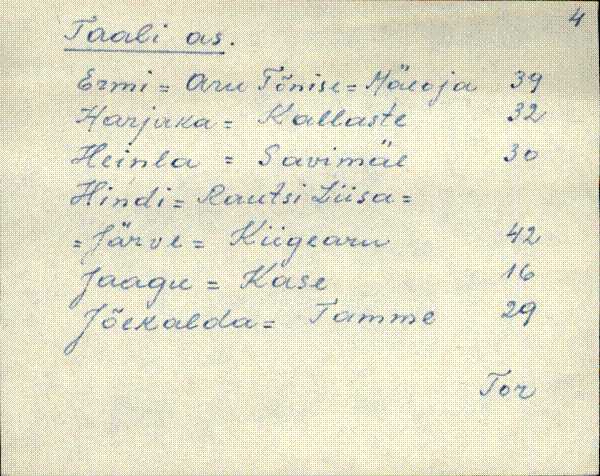 4
Taali as.
Ermi = Aru Tõnise = Mäeoja 39
Harjaka = Kallaste 32
Heinla = Savimäe 30
Hindi = Rautsi Liisa =
= Järve = Kiigearu 42
Jaagu = Kase 16
Jõekalda = Tamme 29
Tor